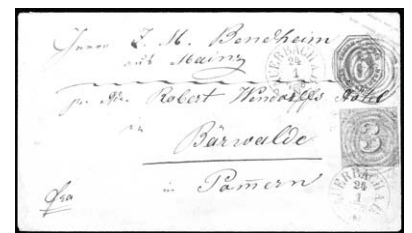 Herrn J. M. Bensheim
aus Mainz
pr. Adr. Robert Wendorffs Hôtel
in
Bärwalde
in Pom̄ern
fro
AUERBACH A.E.
24
1
6
3
AUERBACH A.E.
24
1